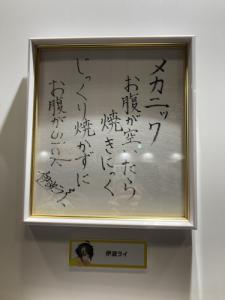 メカニック
お腹が空いたら
焼きにっく
じっくり焼かずに
お腹がSICK
伊波ライ